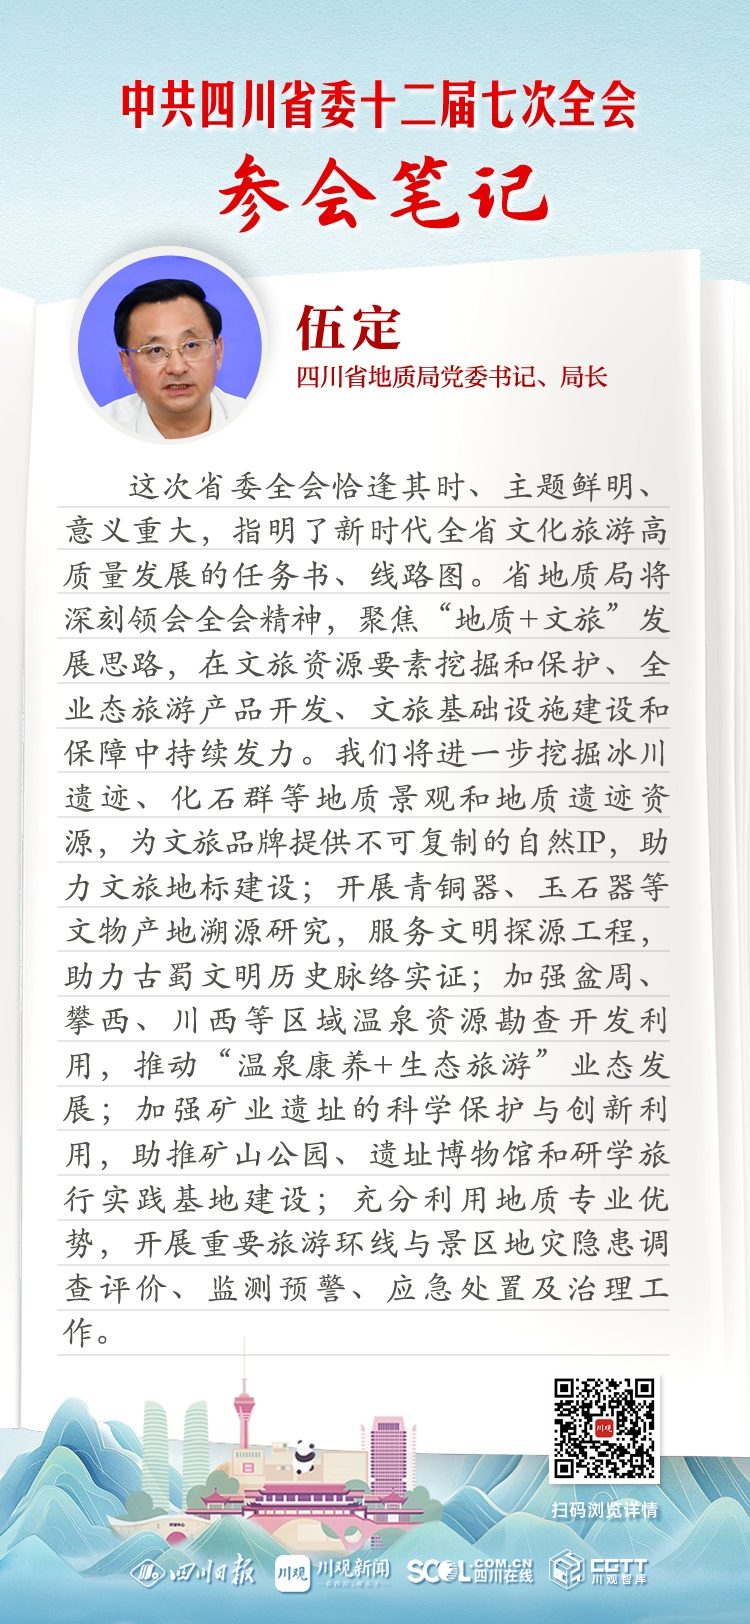 中共四川省委十二届七次全会
参会笔记
伍定
四川省地质局党委书记、局长
这次省委全会恰逢其时、主题鲜明、
意义重大，指明了新时代全省文化旅游高
质量发展的任务书、线路图。省地质局将
深刻领会全会精神，聚焦“地质+文旅”发
展思路，在文旅资源要素挖掘和保护、全
业态旅游产品开发、文旅基础设施建设和
保障中持续发力。我们将进一步挖掘冰川
遗迹、化石群等地质景观和地质遗迹资
源，为文旅品牌提供不可复制的自然IP，助
力文旅地标建设；开展青铜器、玉石器等
文物产地溯源研究，服务文明探源工程，
助力古蜀文明历史脉络实证；加强盆周、
攀西、川西等区域温泉资源勘查开发利
用，推动“温泉康养+生态旅游”业态发
展；加强矿业遗址的科学保护与创新利
用，助推矿山公园、遗址博物馆和研学旅
行实践基地建设；充分利用地质专业优
势，开展重要旅游环线与景区地灾隐患调
查评价、监测预警、应急处置及治理工
作。
川观
扫码浏览详情
四川日报
川观
川观新闻
SCOL.COM.CN
四川在线
CGTT
川观智库